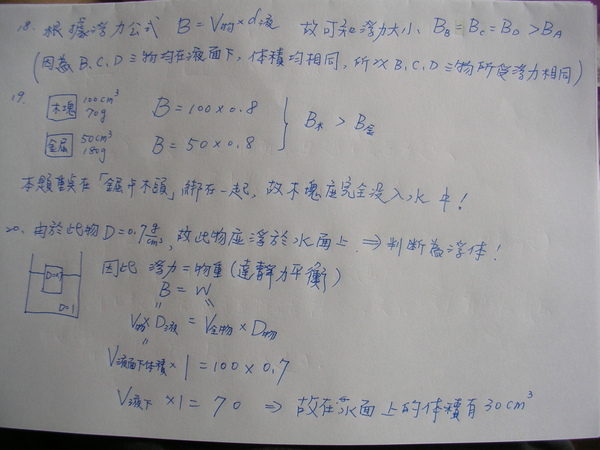 18. 根據浮力公式 B = V物 × d液 故可知浮力大小、B_B = B_C = B_D > B_A
(因為 B、C、D 三物均在液面下, 体積均相同, 所以 B、C、D 三物所受浮力相同)
19.
木塊 100cm³ 70g B = 100 × 0.8
金屬 50cm³ 180g B = 50 × 0.8
} B木 > B金
本題重點在「金屬与木頭」綁在一起, 故木塊應完全沒入水中!
20. 由於此物 D = 0.7 g/cm³, 故此物應浮於水面上 ⇒ 判斷為浮体!
D=0.7
D=1
因此 浮力 = 物重 (達靜力平衡)
B = W
V物 × D液 = V全物 × D物
V液面下体積 × 1 = 100 × 0.7
V液下 × 1 = 70 ⇒ 故在水面上的体積有 30 cm³